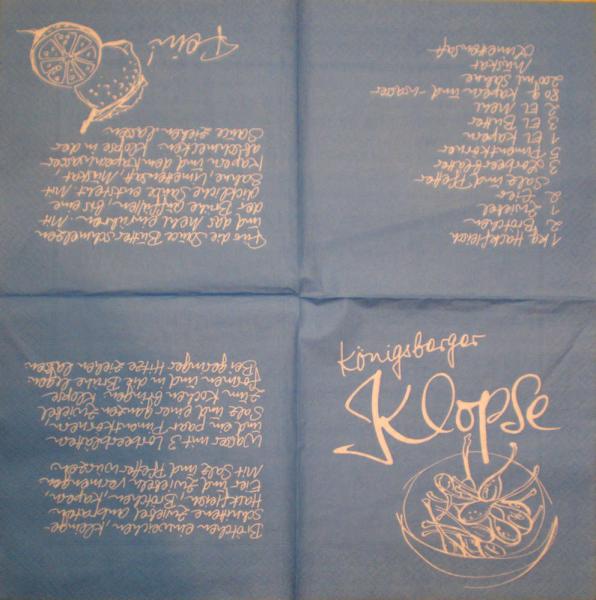 Königsberger
Klopse
1 kg Hackfleisch
2 Brötchen
1 Zwiebel
2 Eier
Salz und Pfeffer
3 Lorbeerblätter
5 Pimentkörner
1 EL Kapern
3 EL Butter
3 EL Mehl
80 g Kapern und -wasser
200 ml Sahne
Muskat
Limettensaft
Brötchen einweichen, kleinge-
schnittene Zwiebel anbraten.
Hackfleisch, Brötchen, Kapern,
Eier und Zwiebeln vermengen.
Mit Salz und Pfeffer würzen.
Wasser mit 3 Lorbeerblättern
und ein paar Pimentkörnern,
Salz und einer ganzen Zwiebel
zum Kochen bringen. Klopse
formen und in die Brühe legen.
Bei geringer Hitze ziehen lassen.
Für die Sauce Butter schmelzen
und das Mehl einrühren. Mit
der Brühe auffüllen, bis eine
dickliche Sauce entsteht. Mit
Sahne, Limettensaft, Muskat,
Kapern und dem Kapernwasser
abschmecken. Klopse in der
Sauce ziehen lassen.
Fein!